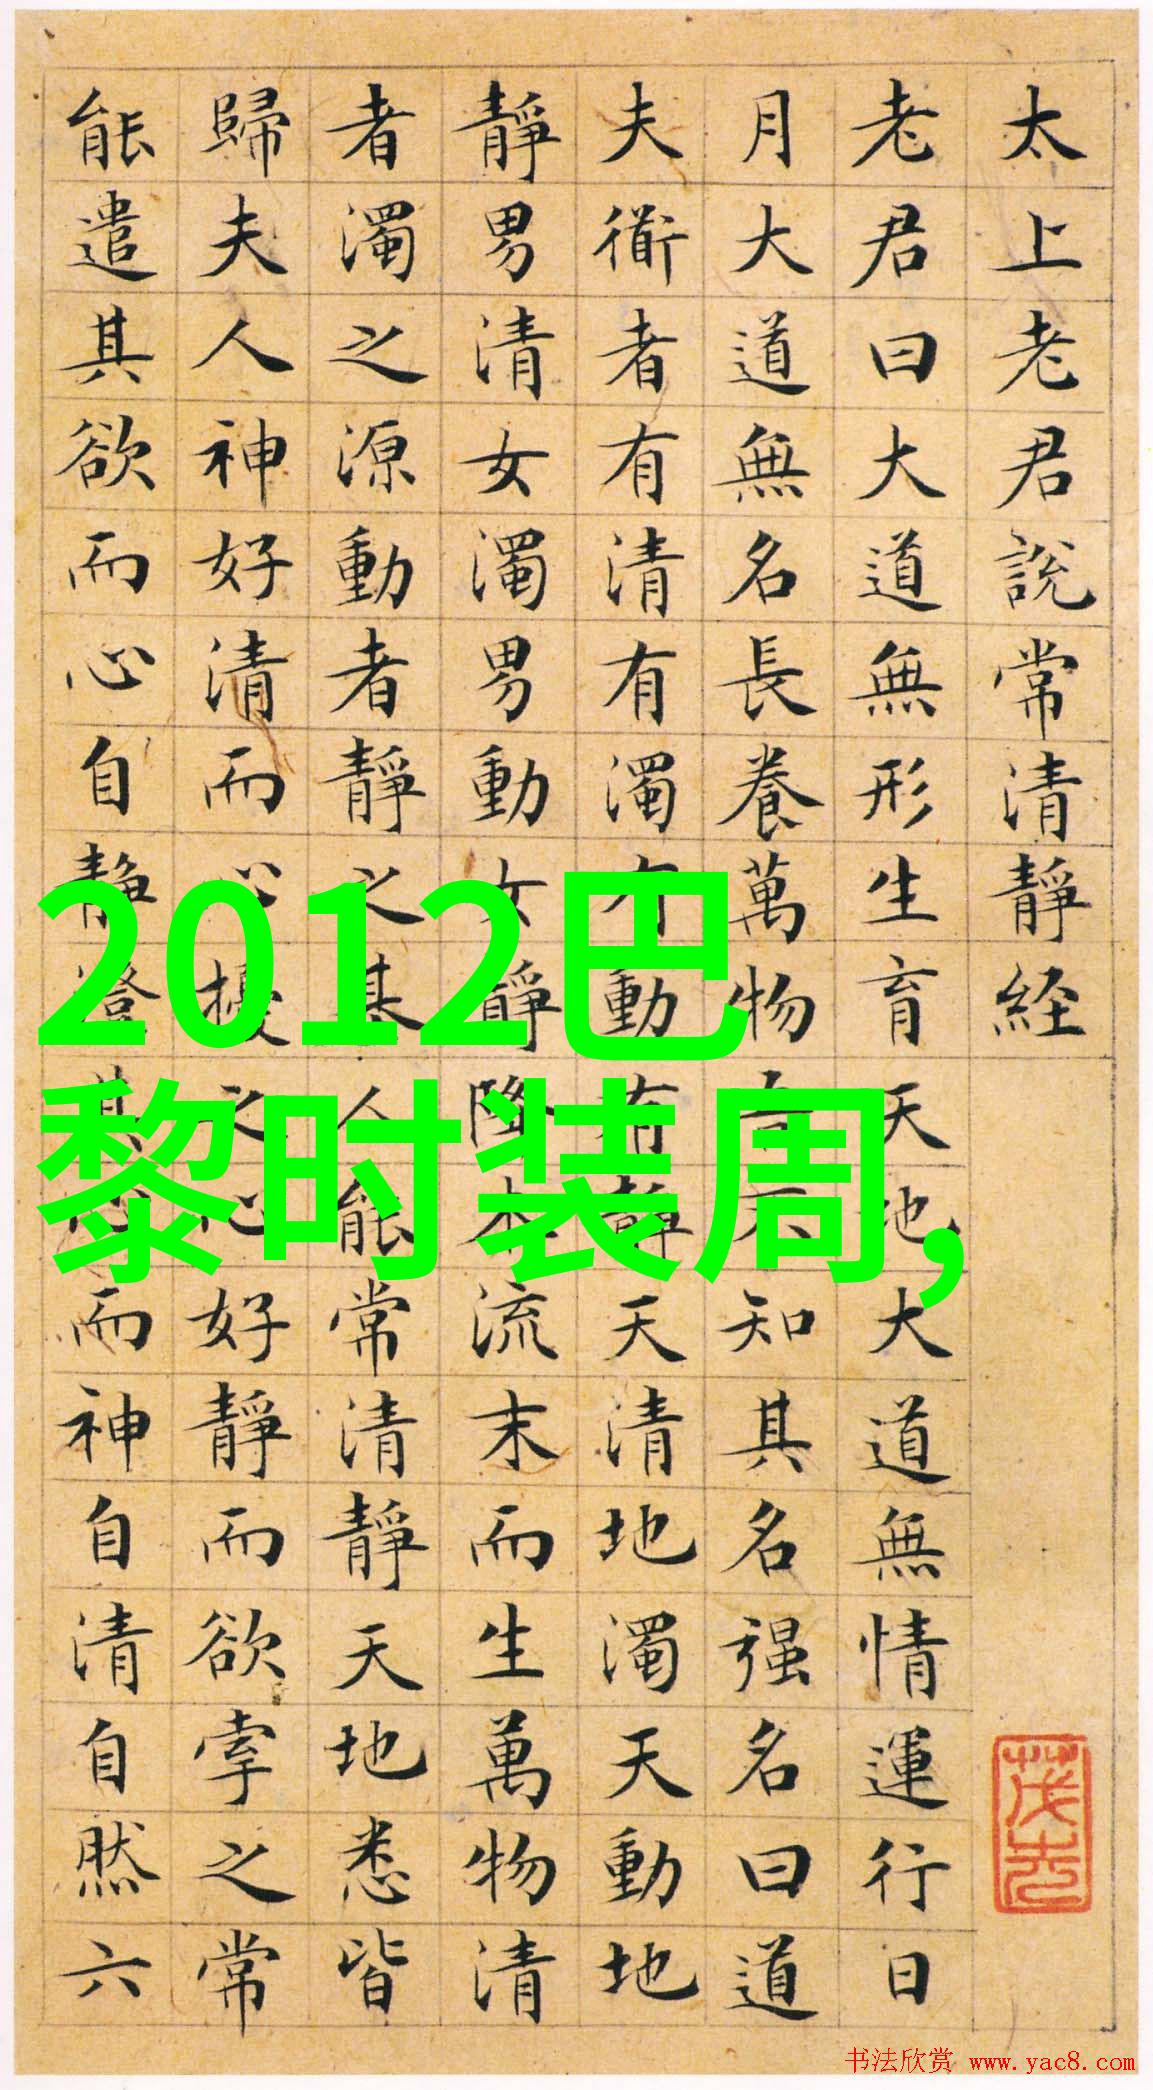 太上老君說常清靜経
老君曰大道無形生育天地大道無情運行日
月大道無名長養萬物吾不知其名强名曰道
夫衟者有清有濁有動有靜天清地濁天動地
靜男清女濁男動女靜降本流末而生萬物清
者濁之源動者靜之基人能常清靜天地悉皆
歸夫人神好清而心擾之心好靜而欲牽之常
能遣其欲而心自靜澄其心而神自清自然六
2012巴
黎时装周,
书法欣赏 www.yac8.com